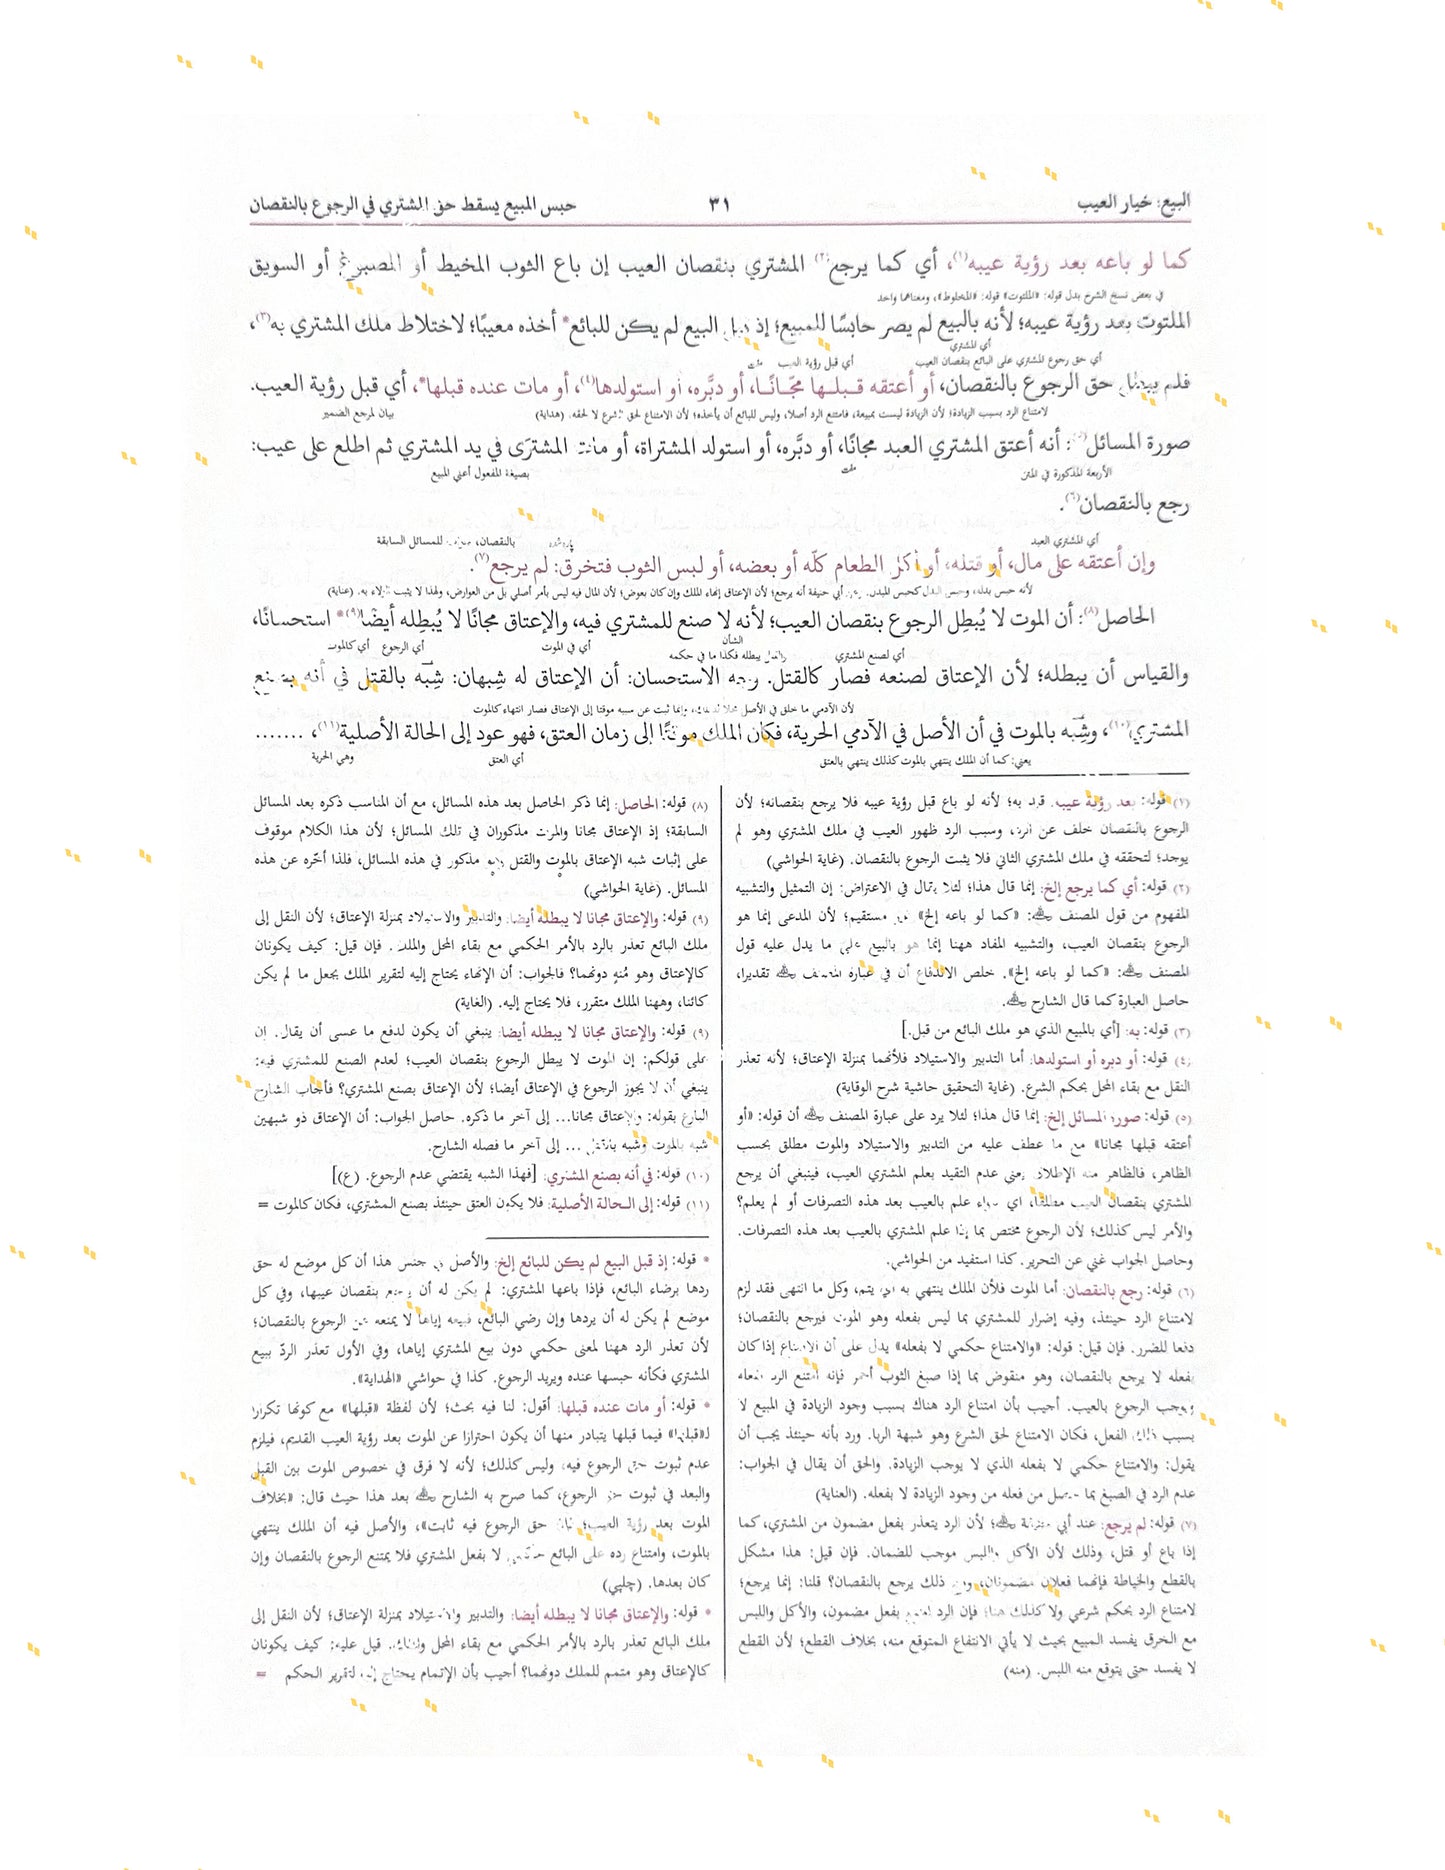 البيع: خيار العيب
٣١
حبس المبيع يسقط حق المشتري في الرجوع بالنقصان
كما لو باعه بعد رؤية عيبه(١)، أي كما يرجع(٢) المشتري بنقصان العيب إن باع الثوب المخيط أو المصبوغ أو السويق
في بعض نسخ الشرح بدل قوله: «الملتوت» قوله: «المخلوط»، ومعناهما واحد
الملتوت بعد رؤية عيبه؛ لأنه بالبيع لم يصر حابسًا للمبيع؛ إذ قبل البيع لم يكن للبائع* أخذه معيبًا؛ لاختلاط ملك المشتري به(٣)،
أي المشتري
أي حق رجوع المشتري على البائع بنقصان العيب أي قبل رؤية العيب
فلم يبطل حق الرجوع بالنقصان، أو أعتقه قبلها مجّانًا، أو دبَّره، أو استولدها(٤)، أو مات عنده قبلها*، أي قبل رؤية العيب.
لامتناع الرد بسبب الزيادة؛ لأن الزيادة ليست بمبيعة، فامتنع الرد أصلا، وليس للبائع أن يأخذه؛ لأن الامتناع لحق الشرع لا لحقه. (هداية) بيان لمرجع الضمير
صورة المسائل(٥): أنه أعتق المشتري العبد مجانًا، أو دبَّره، أو استولد المشتراة، أو مات المشترَى في يد المشتري ثم اطلع على عيب:
الأربعة المذكورة في المتن بصيغة المفعول أعني المبيع
رجع بالنقصان(٦).
أي المشتري العبد بالنقصان، للمسائل السابقة
وإن أعتقه على مال، أو قتله، أو أكل الطعام كلّه أو بعضه، أو لبس الثوب فتخرق: لم يرجع(٧).
لأنه حبس بدله، وحبس البدل كحبس المبدل. وعن أبي حنيفة أنه يرجع؛ لأن الإعتاق إنهاء الملك وإن كان بعوض؛ لأن المال فيه ليس بأمر أصلي بل من العوارض، ولهذا لا يثبت الولاء به. (عناية)
الحاصل(٨): أن الموت لا يُبطِل الرجوع بنقصان العيب؛ لأنه لا صنع للمشتري فيه، والإعتاق مجانًا لا يُبطِله أيضًا(٩)* استحسانًا،
الشأن أي في الموت أي الرجوع أي كالموت
أي لصنع المشتري والقتل يبطله فكذا ما في حكمه
والقياس أن يبطله؛ لأن الإعتاق لصنعه فصار كالقتل. وجه الاستحسان: أن الإعتاق له شِبهان: شِبْه بالقتل في أنه بصنع
لأن الآدمي ما خلق في الأصل محلا للملك، وإنما ثبت عن سببه موقتا إلى الإعتاق فصار انتهاء كالموت
المشتري(١٠)، وشِبْه بالموت في أن الأصل في الآدمي الحرية، فكان الملك موقتًا إلى زمان العتق، فهو عود إلى الحالة الأصلية(١١)، .......
يعني: كما أن الملك ينتهي بالموت كذلك ينتهي بالعتق أي العتق وهي الحرية
(١) قوله: بعد رؤية عيبه: قيد به؛ لأنه لو باع قبل رؤية عيبه فلا يرجع بنقصانه؛ لأن
الرجوع بالنقصان خلف عن الرد، وسبب الرد ظهور العيب في ملك المشتري وهو لم
يوجد؛ لتحققه في ملك المشتري الثاني فلا يثبت الرجوع بالنقصان. (غاية الحواشي)
(٢) قوله: أي كما يرجع إلخ: إنما قال هذا؛ لئلا يقال في الاعتراض: إن التمثيل والتشبيه
المفهوم من قول المصنف رحمه الله: «كما لو باعه إلخ» غير مستقيم؛ لأن المدعى إنما هو
الرجوع بنقصان العيب، والتشبيه المفاد ههنا إنما هو بالبيع على ما يدل عليه قول
المصنف رحمه الله: «كما لو باعه إلخ». خلص الاندفاع أن في عبارة المصنف رحمه الله تقديرا،
حاصل العبارة كما قال الشارح رحمه الله.
(٣) قوله: به: [أي بالمبيع الذي هو ملك البائع من قبل.]
(٤) قوله: أو دبره أو استولدها: أما التدبير والاستيلاد فلأنهما بمنزلة الإعتاق؛ لأنه تعذر
النقل مع بقاء المحل بحكم الشرع. (غاية التحقيق حاشية شرح الوقاية)
(٥) قوله: صورة المسائل إلخ: إنما قال هذا؛ لئلا يرد على عبارة المصنف رحمه الله أن قوله: «أو
أعتقه قبلها مجانا» مع ما عطف عليه من التدبير والاستيلاد والموت مطلق بحسب
الظاهر، فالظاهر منه الإطلاق يعني عدم التقيد بعلم المشتري العيب، فينبغي أن يرجع
المشتري بنقصان العيب مطلقا، أي سواء علم بالعيب بعد هذه التصرفات أو لم يعلم؟
والأمر ليس كذلك؛ لأن الرجوع مختص بما إذا علم المشتري بالعيب بعد هذه التصرفات.
وحاصل الجواب غني عن التحرير. كذا استفيد من الحواشي.
(٦) قوله: رجع بالنقصان: أما الموت فلأن الملك ينتهي به أي يتم، وكل ما انتهى فقد لزم
لامتناع الرد حينئذ، وفيه إضرار للمشتري بما ليس بفعله وهو الموت فيرجع بالنقصان؛
دفعا للضرر. فإن قيل: قوله: «والامتناع حكمي لا بفعله» يدل على أن الامتناع إذا كان
بفعله لا يرجع بالنقصان، وهو منقوض بما إذا صبغ الثوب أحمر فإنه امتنع الرد بفعله
ويوجب الرجوع بالعيب. أجيب بأن امتناع الرد هناك بسبب وجود الزيادة في المبيع لا
بسبب ذلك الفعل، فكان الامتناع لحق الشرع وهو شبهة الربا. ورد بأنه حينئذ يجب أن
يقول: والامتناع حكمي لا بفعله الذي لا يوجب الزيادة. والحق أن يقال في الجواب:
عدم الرد في الصبغ بما حصل من فعله من وجود الزيادة لا بفعله. (العناية)
(٧) قوله: لم يرجع: عند أبي حنيفة رحمه الله؛ لأن الرد يتعذر بفعل مضمون من المشتري، كما
إذا باع أو قتل، وذلك لأن الأكل واللبس موجب للضمان. فإن قيل: هذا مشكل
بالقطع والخياطة فإنهما فعلان مضمونان، ومع ذلك يرجع بالنقصان؟ قلنا: إنما يرجع؛
لامتناع الرد بحكم شرعي ولا كذلك هنا؛ فإن الرد امتنع بفعل مضمون، والأكل واللبس
مع الخرق يفسد المبيع بحيث لا يأتي الانتفاع المتوقع منه، بخلاف القطع؛ لأن القطع
لا يفسد حتى يتوقع منه اللبس. (منه)
(٨) قوله: الحاصل: إنما ذكر الحاصل بعد هذه المسائل، مع أن المناسب ذكره بعد المسائل
السابقة؛ إذ الإعتاق مجانا والموت مذكوران في تلك المسائل؛ لأن هذا الكلام موقوف
على إثبات شبه الإعتاق بالموت والقتل وهو مذكور في هذه المسائل، فلذا أخّره عن هذه
المسائل. (غاية الحواشي)
(٩) قوله: والإعتاق مجانا لا يبطله أيضا: والتدبير والاستيلاد بمنزلة الإعتاق؛ لأن النقل إلى
ملك البائع تعذر بالرد بالأمر الحكمي مع بقاء المحل والملك. فإن قيل: كيف يكونان
كالإعتاق وهو مُنهٍ دونهما؟ فالجواب: أن الإنهاء يحتاج إليه لتقرير الملك بجعل ما لم يكن
كائنا، وههنا الملك متقرر، فلا يحتاج إليه. (الغاية)
(٩) قوله: والإعتاق مجانا لا يبطله أيضا: ينبغي أن يكون لدفع ما عسى أن يقال. إن
على قولكم: إن الموت لا يبطل الرجوع بنقصان العيب؛ لعدم الصنع للمشتري فيه:
ينبغي أن لا يجوز الرجوع في الإعتاق أيضا؛ لأن الإعتاق بصنع المشتري؟ فأجاب الشارح
البارع بقوله: والإعتاق مجانا... إلى آخر ما ذكره. حاصل الجواب: أن الإعتاق ذو شبهين
شبه بالموت وشبه بالقتل ... إلى آخر ما فصله الشارح.
(١٠) قوله: في أنه بصنع المشتري: [فهذا الشبه يقتضي عدم الرجوع. (ع)]
(١١) قوله: إلى الحالة الأصلية: فلا يكون العتق حينئذ بصنع المشتري، فكان كالموت =
* قوله: إذ قبل البيع لم يكن للبائع إلخ: والأصل في جنس هذا أن كل موضع له حق
ردها برضاء البائع، فإذا باعها المشتري: لم يكن له أن يرجع بنقصان عيبها، وفي كل
موضع لم يكن له أن يردها وإن رضي البائع، فبيعه إياها لا يمنعه عن الرجوع بالنقصان؛
لأن تعذر الرد ههنا لمعنى حكمي دون بيع المشتري إياها، وفي الأول تعذر الردّ ببيع
المشتري فكأنه حبسها عنده ويريد الرجوع. كذا في حواشي «الهداية».
* قوله: أو مات عنده قبلها: أقول: لنا فيه بحث؛ لأن لفظة «قبلها» مع كونها تكرارا
لـ«قبلها» فيما قبلها يتبادر منها أن يكون احترازا عن الموت بعد رؤية العيب القديم، فيلزم
عدم ثبوت حق الرجوع فيه، وليس كذلك؛ لأنه لا فرق في خصوص الموت بين القبل
والبعد في ثبوت حق الرجوع، كما صرح به الشارح رحمه الله بعد هذا حيث قال: «بخلاف
الموت بعد رؤية العيب؛ فإن حق الرجوع فيه ثابت»، والأصل فيه أن الملك ينتهي
بالموت، وامتناع رده على البائع حكمي لا بفعل المشتري فلا يمتنع الرجوع بالنقصان وإن
كان بعدها. (چلپي)
* قوله: والإعتاق مجانا لا يبطله أيضا: والتدبير والاستيلاد بمنزلة الإعتاق؛ لأن النقل إلى
ملك البائع تعذر بالرد بالأمر الحكمي مع بقاء المحل والملك. قيل عليه: كيف يكونان
كالإعتاق وهو متمم للملك دونهما؟ أجيب بأن الإتمام يحتاج إليه لتقرير الحكم =